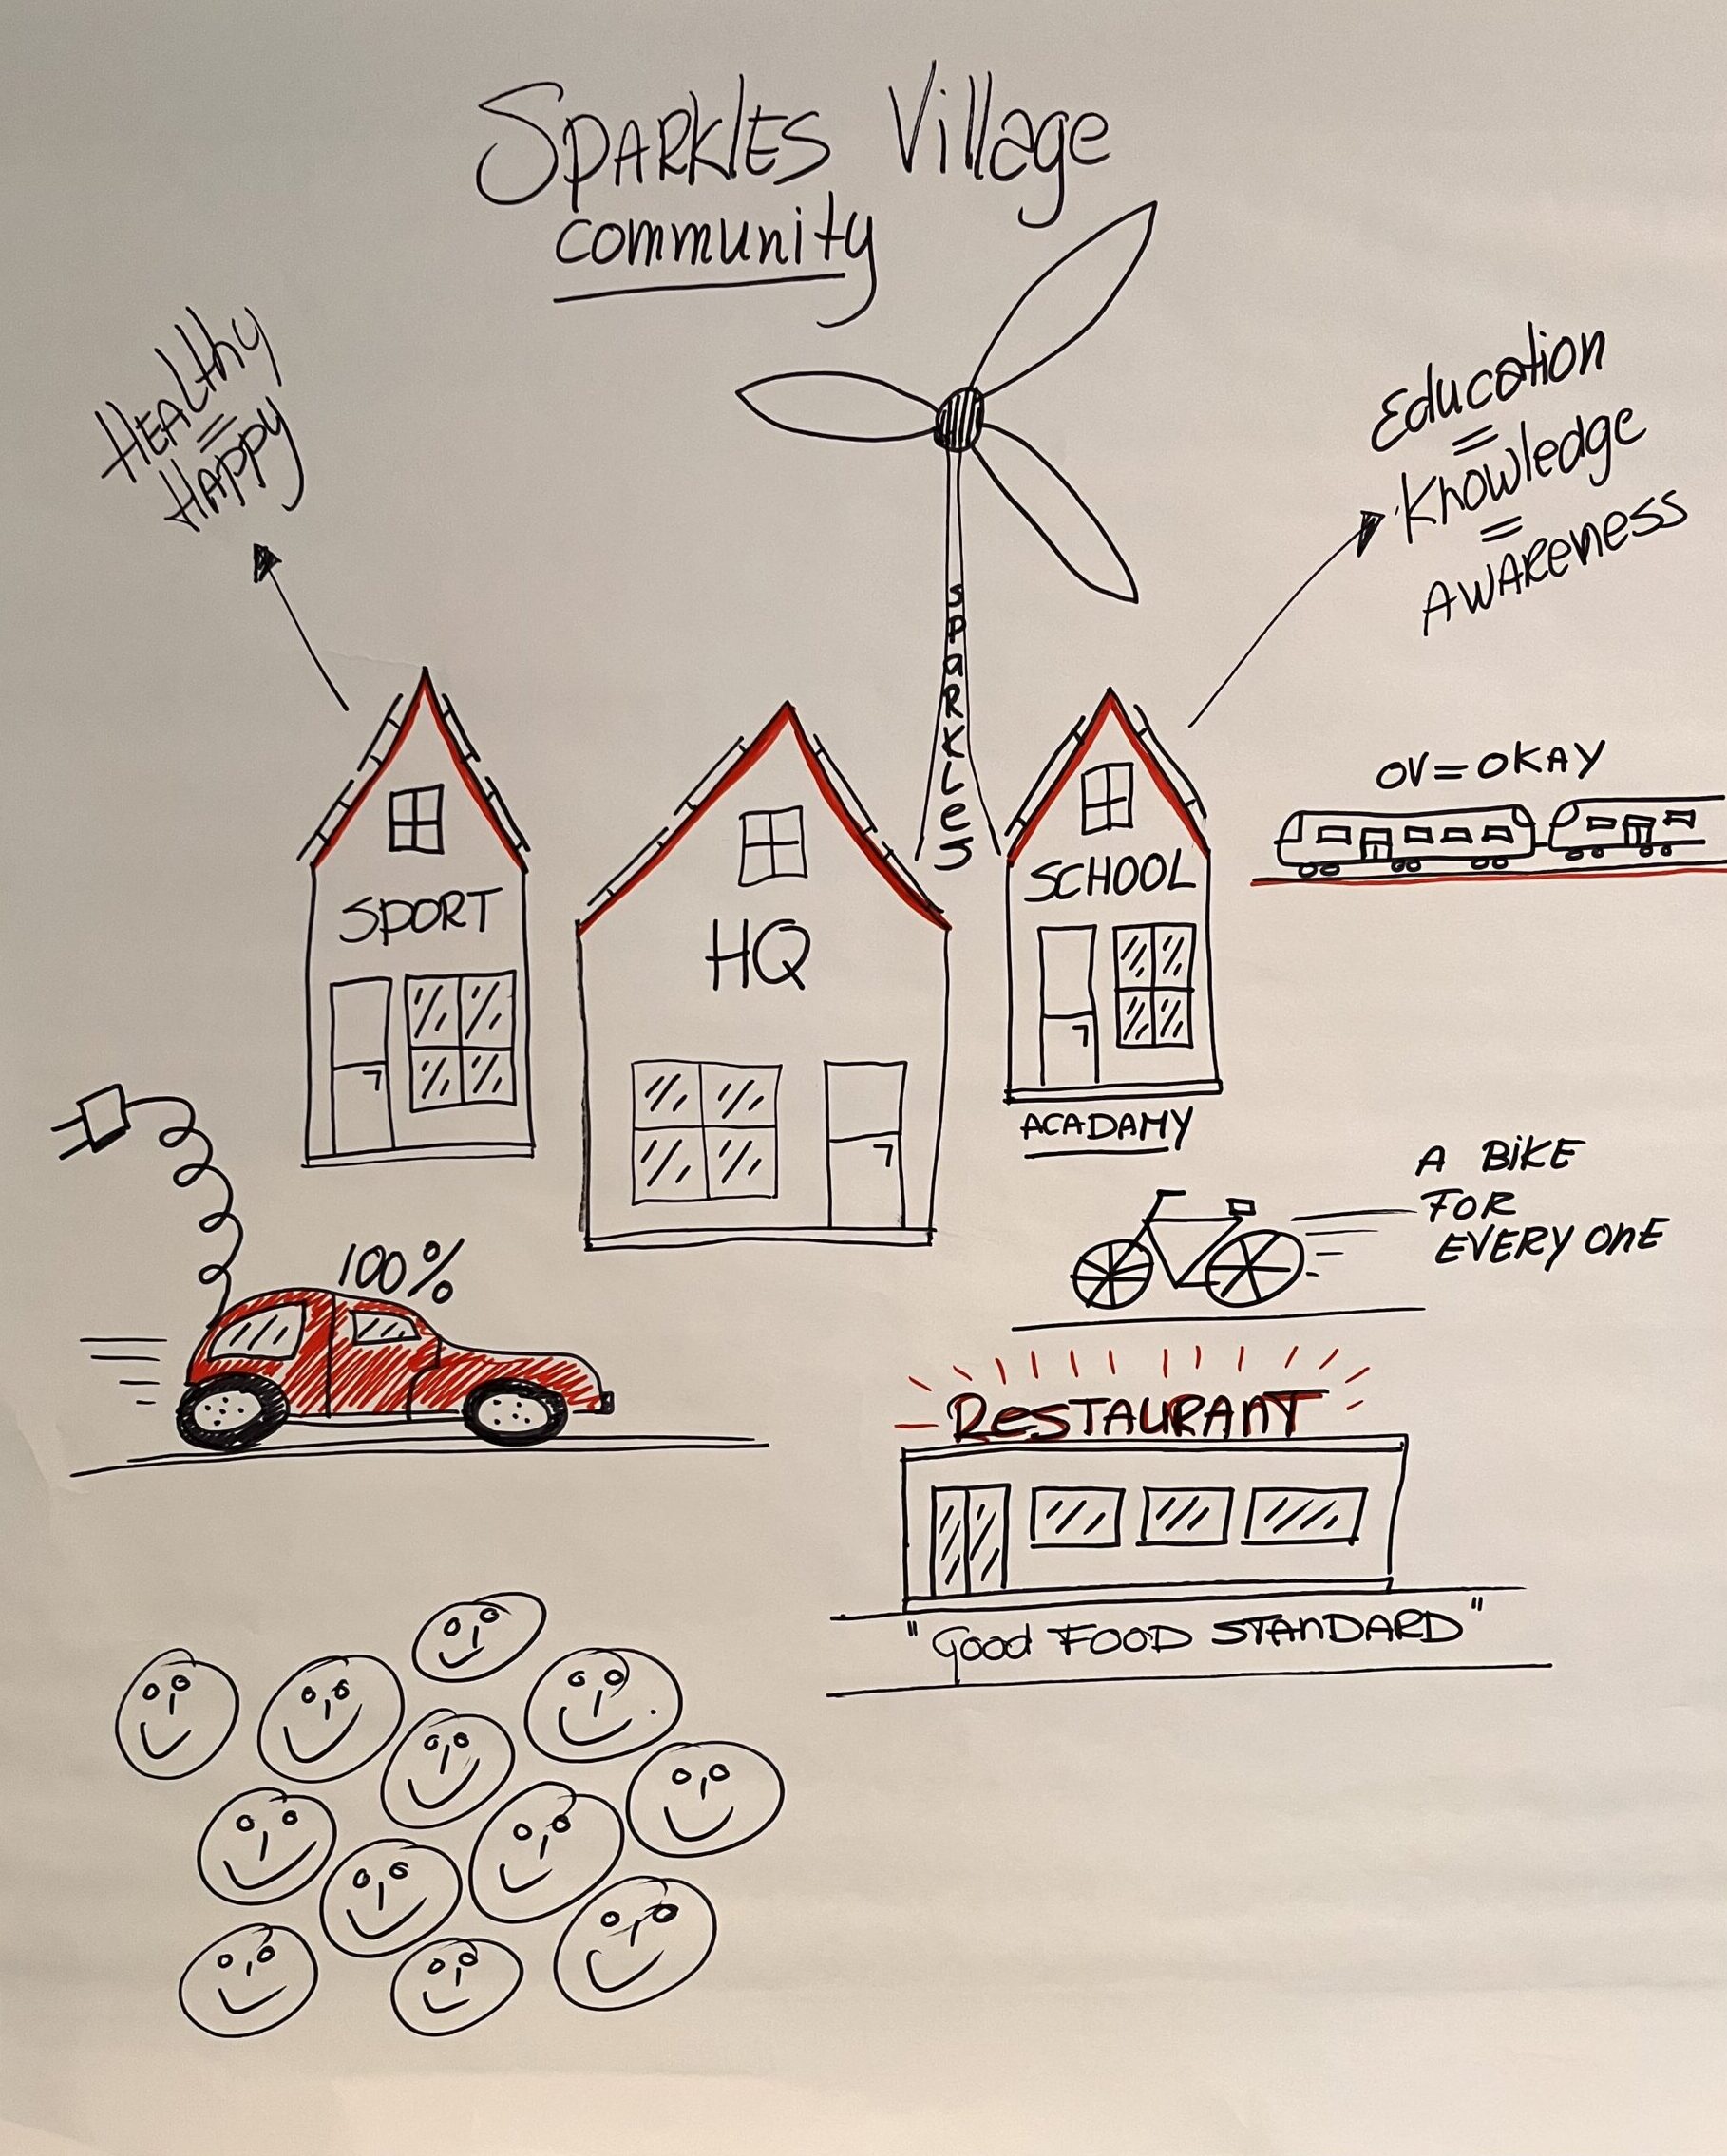 SPARKLES Village
community
HEALthy
=
HAPPY
Education
=
Knowledge
=
AWARENESS
SPaRKLeS
OV=OKAY
SPORT
HQ
SCHOOL
ACADAMY
A BiKE
FOR
EVERY ONE
100%
ReSTAURANT
"Good FOOD STANDARD"